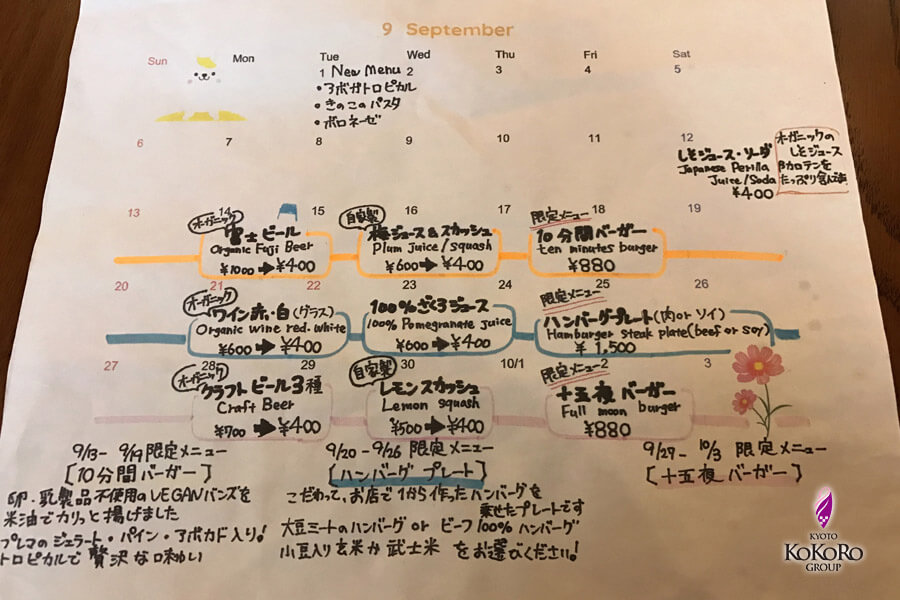 9 September
Sun Mon Tue Wed Thu Fri Sat
1 New Menu 2 3 4 5
・アボガトロピカル
・きのこのパスタ
・ボロネーゼ
6 7 8 9 10 11 12
しそジュース・ソーダ
Japanese Perilla
Juice/Soda
¥400
オーガニックの
しそジュース
βカロテンを
たっぷり含んだ
13 14 15 16 17 18 19
オーガニック
富士ビール
Organic Fuji Beer
¥1000➡¥400
自家製
梅ジュース&スカッシュ
Plum juice/squash
¥600➡¥400
限定メニュー
10分間バーガー
ten minutes burger
¥880
20 21 22 23 24 25 26
オーガニック
ワイン赤・白(グラス)
Organic wine red.white
¥600➡¥400
100%ざくろジュース
100% Pomegranate juice
¥600➡¥400
限定メニュー
ハンバーグプレート(肉orソイ)
Hamburger steak plate(beef or soy)
¥1,500
27 28 29 30 10/1 2 3
オーガニック
クラフトビール3種
Craft Beer
¥700➡¥400
自家製
レモンスカッシュ
Lemon squash
¥500➡¥400
限定メニュー
十五夜バーガー
Full moon burger
¥880
9/13- 9/19限定メニュー
[10分間バーガー]
卵・乳製品不使用のVEGANバンズを
米油でカリっと揚げました
プレマのジェラート・パイン・アボカド入り!
トロピカルで贅沢な味わい
9/20-9/26 限定メニュー
[ハンバーグプレート]
こだわって、お店で1から作ったハンバーグを
乗せたプレートです
大豆ミートのハンバーグ or ビーフ100%ハンバーグ
小豆入り玄米か武士米 をお選びください!
9/27-10/3 限定メニュー
[十五夜バーガー]
KYOTO
KOKORO
GROUP